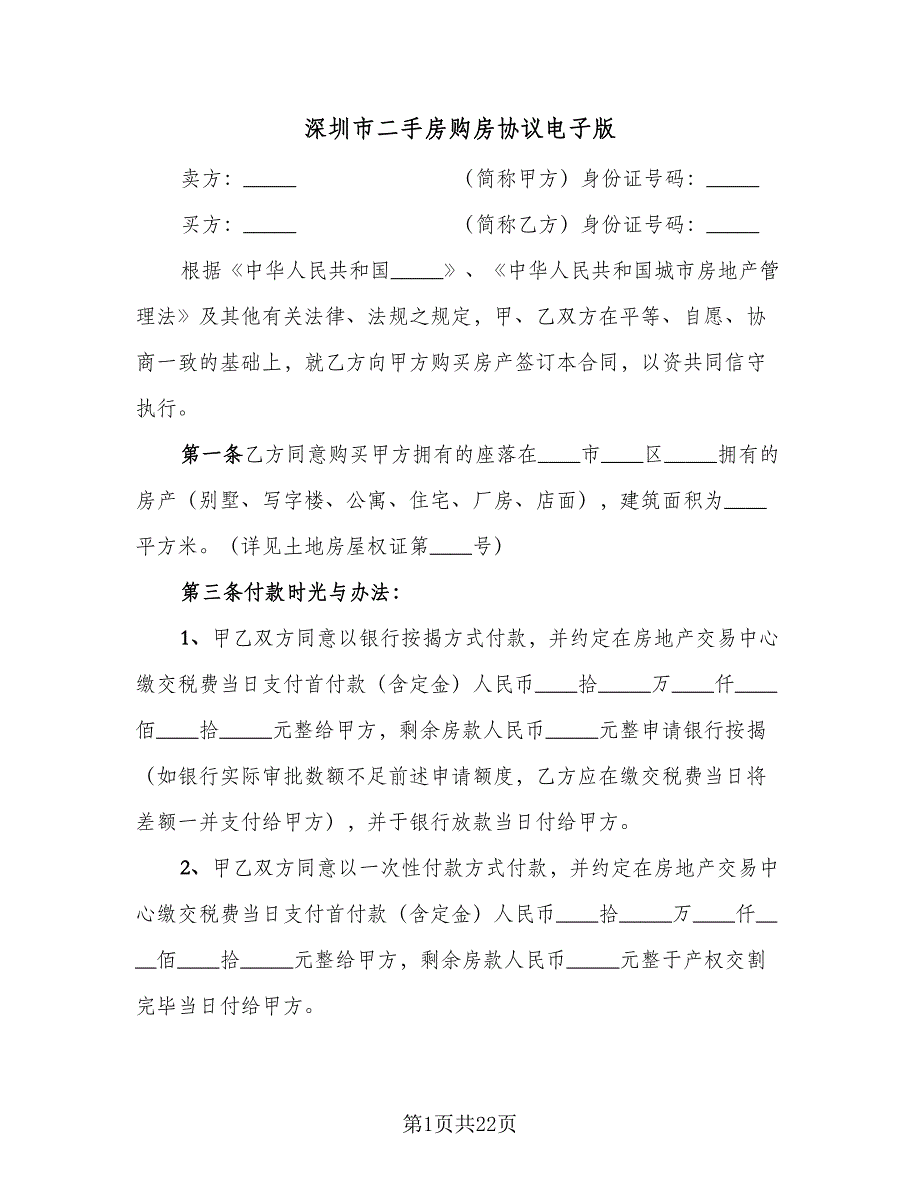 深圳市二手房购房协议电子版
卖方：_____ （简称甲方）身份证号码：_____
买方：_____ （简称乙方）身份证号码：_____
根据《中华人民共和国_____》、《中华人民共和国城市房地产管
理法》及其他有关法律、法规之规定，甲、乙双方在平等、自愿、协
商一致的基础上，就乙方向甲方购买房产签订本合同，以资共同信守
执行。
第一条乙方同意购买甲方拥有的座落在____市____区_____拥有的
房产（别墅、写字楼、公寓、住宅、厂房、店面），建筑面积为____
平方米。（详见土地房屋权证第____号）
第三条付款时光与办法：
1、甲乙双方同意以银行按揭方式付款，并约定在房地产交易中心
缴交税费当日支付首付款（含定金）人民币____拾_____万____仟____
佰____拾_____元整给甲方，剩余房款人民币_____元整申请银行按揭
（如银行实际审批数额不足前述申请额度，乙方应在缴交税费当日将
差额一并支付给甲方），并于银行放款当日付给甲方。
2、甲乙双方同意以一次性付款方式付款，并约定在房地产交易中
心缴交税费当日支付首付款（含定金）人民币____拾_____万____仟__
__佰____拾_____元整给甲方，剩余房款人民币_____元整于产权交割
完毕当日付给甲方。
第1页共22页